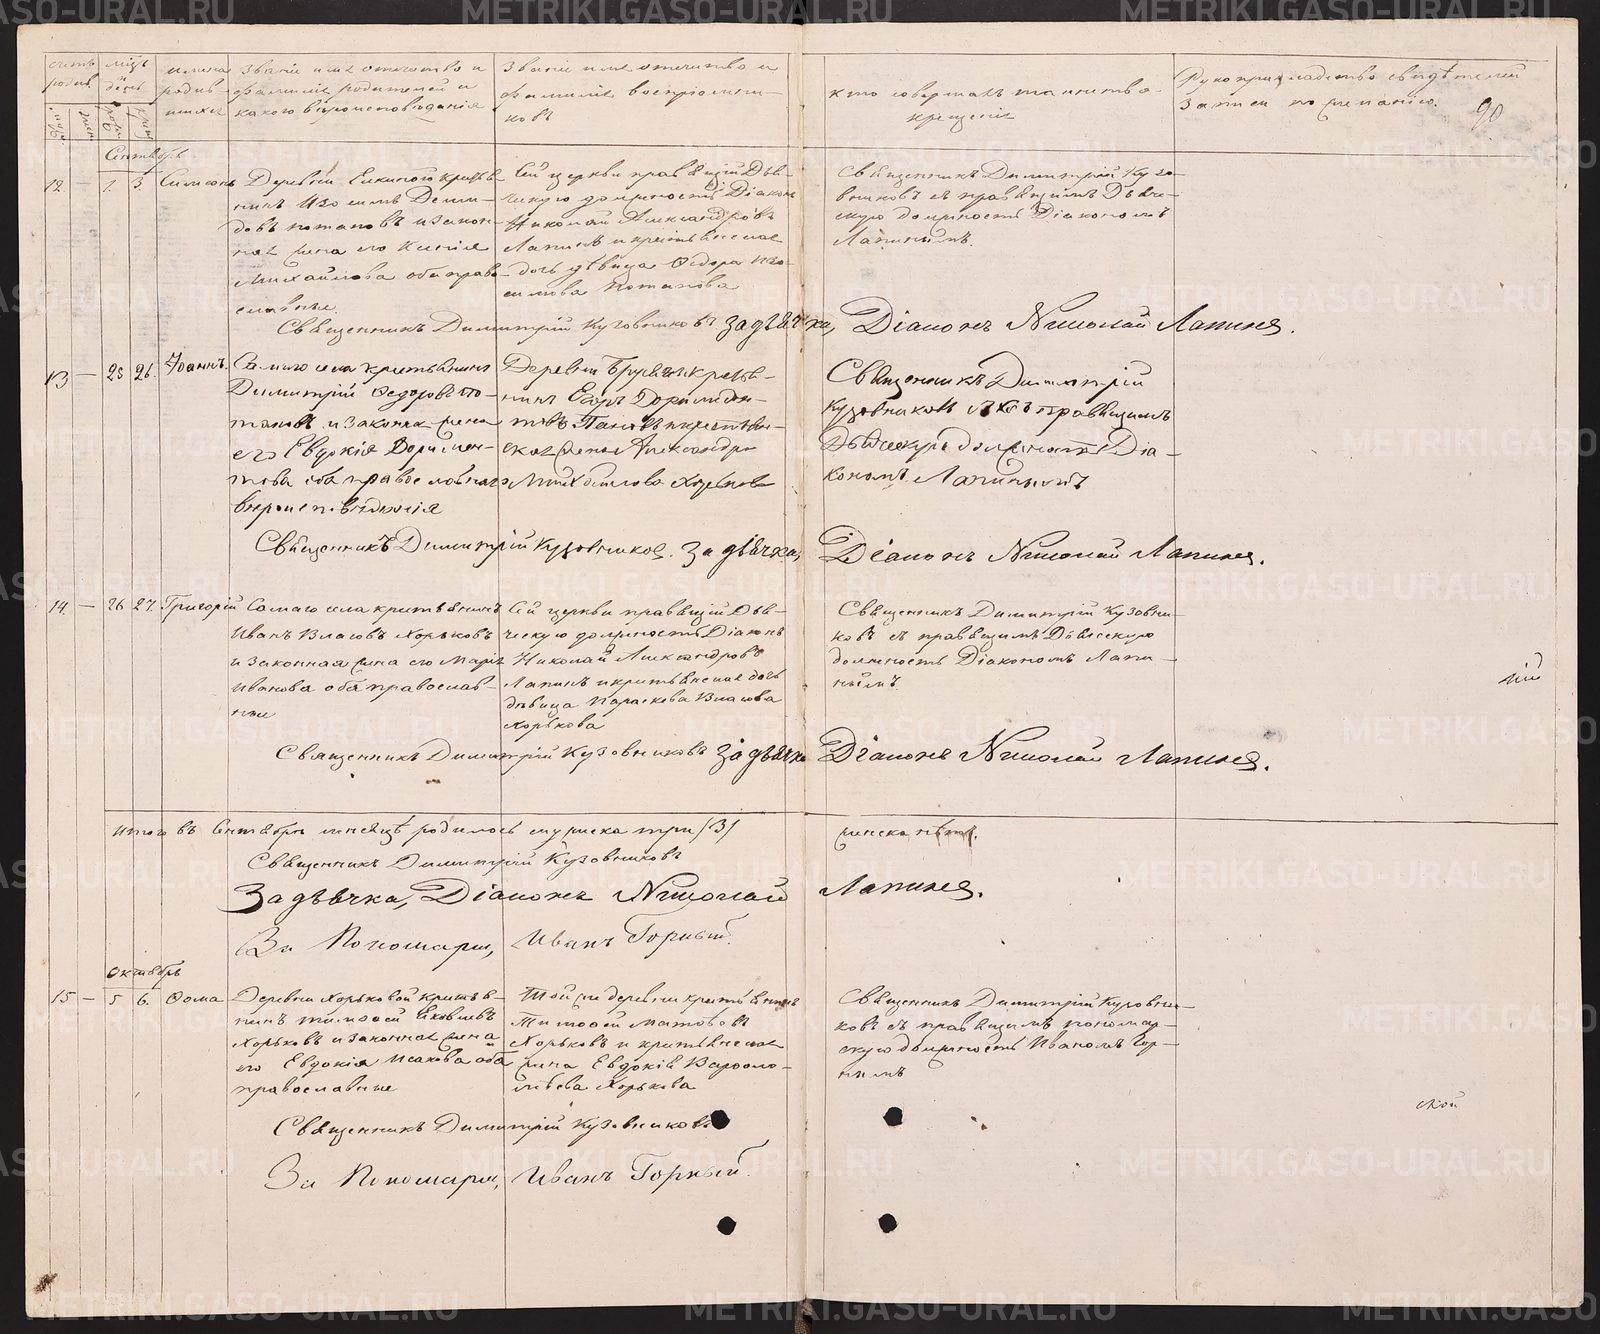 счетъ родив.
мѣцъ и день
имена родив-шихся
Званіе имя отечество и фамилія родителей и какого вѣроисповѣданія
Званіе имя отечество и фамилія воспріемни-ковъ
кто совершалъ таинство крещенія
Рукоприкладство свидѣтелей записи по желанію.
90
Сентябрь
12 — 1. 3. Симеонъ
Деревни Елкиного крестья-
нинъ Изосимъ Деми-
довъ Потаповъ и закон-
ная жена его Ксенія
Михайлова оба право-
славные.
Сей церкви правящій Дья-
ческую должность Діаконъ
Николай Александровъ
Лапинъ и крестьянская
дочь дѣвица Ѳедора Изо-
симова Потапова
Священникъ Димитрій Кузо-
вниковъ съ правящимъ Дьяче-
скую должность Діакономъ
Лапинымъ.
Священникъ Димитрій Кузовниковъ За дьячка, Діаконъ Николай Лапинъ.
13 — 25 26. Іоаннъ.
Самаго села крестьянинъ
Димитрій Ѳедоровъ По-
таповъ и законная жена
его Евдокія Доримен-
това оба православнаго
вѣроисповѣданія
Деревни крестья-
нинъ Егоръ Доримедон-
товъ и крестьян-
ская жена Александра
Михайлова Хорькова
Священникъ Димитрій
Кузовниковъ съ правящимъ
Дьяческую должность Діа-
кономъ Лапинымъ
Священникъ Димитрій Кузовниковъ. За дьячка, Діаконъ Николай Лапинъ.
14. — 26 27. Григорій
Самаго села крестьянинъ
Иванъ Власовъ Хорьковъ
и законная жена его Марія
Иванова оба православ-
ные
Сей церкви правящій Дья-
ческую должность Діаконъ
Николай Александровъ
Лапинъ и крестьянская дочь
дѣвица Параскева Власова
Хорькова
Священникъ Димитрій Кузовни-
ковъ съ правящимъ Дьяческую
должность Діакономъ Лапи-
нымъ
Священникъ Димитрій Кузовниковъ За дьячка Діаконъ Николай Лапинъ.
Итого въ Сентябрѣ мѣсяцѣ родилось мужеска три /3/ женска нѣтъ.
Священникъ Димитрій Кузовниковъ
За дьячка, Діаконъ Николай Лапинъ.
За Пономаря, Иванъ Горный.
Октябрь
15 — 5 6. Ѳома
Деревни Хорьковой крестья-
нинъ Тимоѳей Яковлевъ
Хорьковъ и законная жена
его Евдокія Исакова оба
православные
Той же деревни крестьянинъ
Тимоѳей Матовъ
Хорьковъ и крестьянская
жена Евдокія Варѳоло-
мѣева Хорькова
Священникъ Димитрій Кузовни-
ковъ съ правящимъ пономар-
скую должность Иваномъ Гор-
нымъ
Священникъ Димитрій Кузовниковъ
За Пономаря, Иванъ Горный.
METRIKI.GASO-URAL.RU